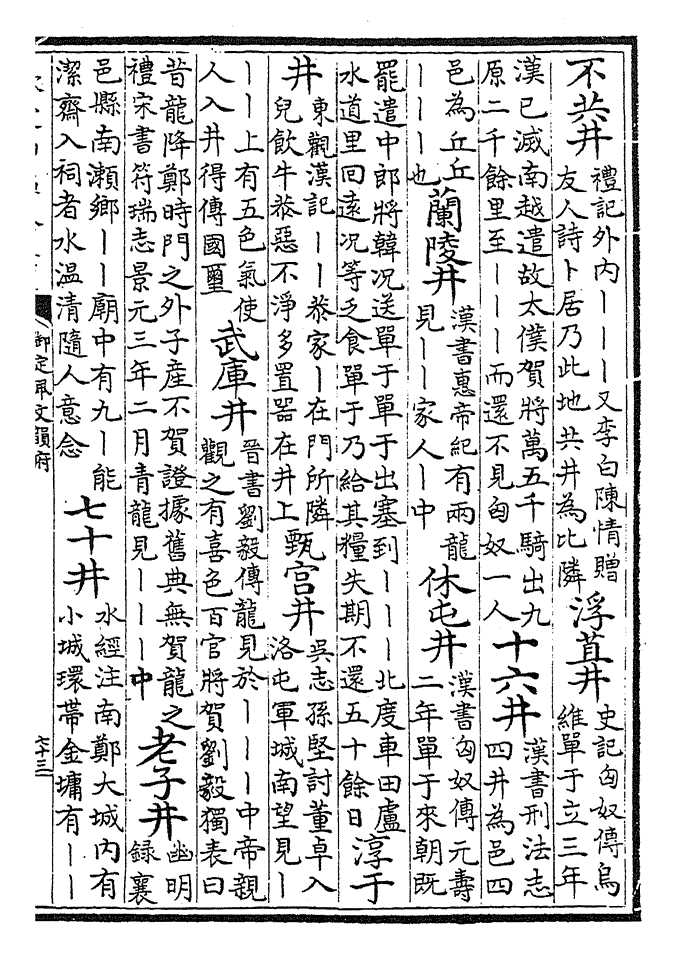 不共井
禮記外内｜｜｜又李白陳情贈
友人詩卜居乃此地共井為比隣
浮苴井
史記匈奴傳烏
維單于立三年
漢已滅南越遣故太僕賀將萬五千騎出九
原二千餘里至｜｜｜而還不見匈奴一人
十六井
漢書刑法志
四井為邑四
邑為丘丘
｜｜｜也
蘭陵井
漢書惠帝紀有兩龍
見｜｜家人｜中
休屯井
漢書匈奴傳元壽
二年單于來朝既
罷遣中郎將韓况送單于單于出塞到｜｜｜北度車田盧
水道里回遠况等乏食單于乃給其糧失期不還五十餘日
淳于
井
東觀漢記｜｜㳟家｜在門所隣
兒飲牛㳟惡不淨多置器在井上
甄宫井
吳志孫堅討董卓入
洛屯軍城南望見｜
｜｜上有五色氣使
人入井得傳國璽
武庫井
晉書劉毅傳龍見於｜｜｜中帝親
觀之有喜色百官將賀劉毅獨表曰
昔龍降鄭時門之外子産不賀證據舊典無賀龍之
禮宋書符瑞志景元三年二月青龍見｜｜｜中
老子井
幽明
録襄
邑縣南瀨鄉｜｜廟中有九｜能
潔齋入祠者水温清隨人意念
七十井
水經注南鄭大城内有
小城環帶金墉有｜｜
御定佩文韻府
六十三